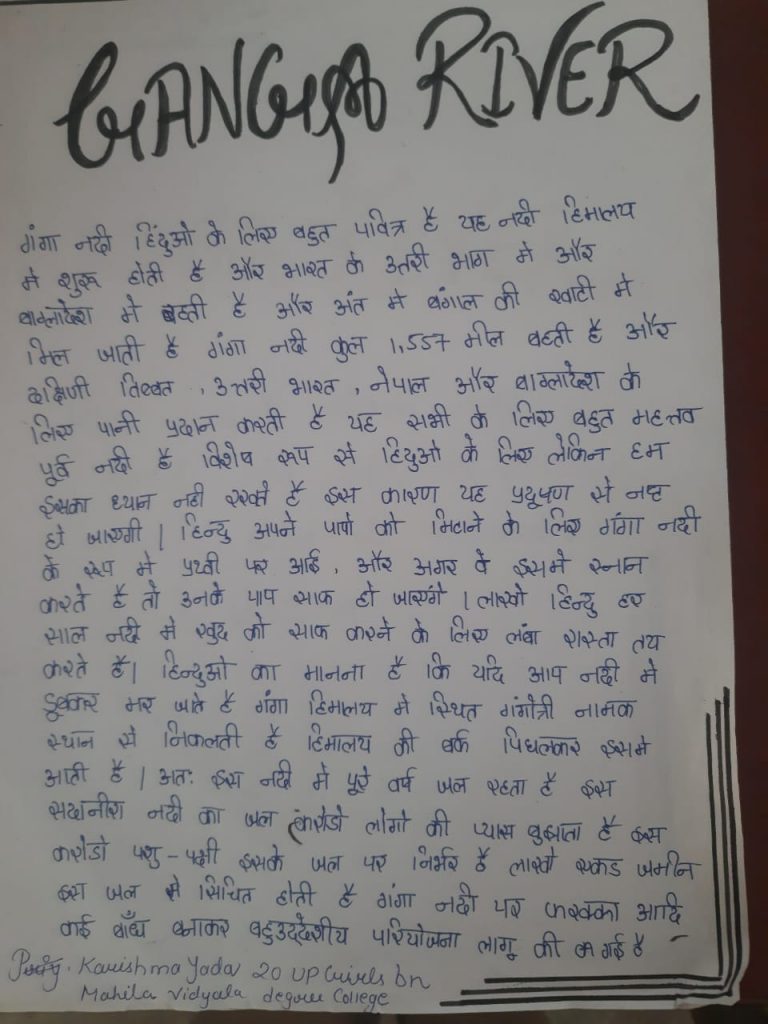 GANGA RIVER
गंगा नदी हिंदुओ के लिए बहुत पवित्र है यह नदी हिमालय
मे शुरू होती है और भारत के उतरी भाग मे और
बाग्लादेश मे बहती है और अंत मे बंगाल की खाटी मे
मिल जाती है गंगा नदी कुल 1,557 मील बहती है और
दक्षिणी तिब्बत , उत्तरी भारत , नेपाल और बाग्लादेश के
लिए पानी प्रदान करती है यह सभी के लिए बहुत महत्तव
पूर्व नदी है विशेष रूप से हिदुओ के लिए लेकिन हम
इसका ध्यान नही रखते है इस कारण यह प्रदूषण से नष्ट
हो जाएगी | हिन्दु अपने पापो को मिटाने के लिए गंगा नदी
के रूप मे पृथ्वी पर आई , और अगर वे इसमे स्नान
करते है तो उनके पाप साफ हो जाएगे | लाखो हिन्दु हर
साल नदी मे खुद को साफ करने के लिए लंबा रास्ता तय
करते है| हिन्दुओ का मानना है कि यदि आप नदी मे
डूबकर मर जाते है गंगा हिमालय मे स्थित गंगोत्री नामक
स्थान से निकलती है हिमालय की बर्फ पिघलकर इसमे
आती है | अतः इस नदी मे पूरे वर्ष जल रहता है इस
सदानीरा नदी का जल करोडो लोगो की प्यास बुझाता है इस
करोडो पशु - पक्षी इसके जल पर निर्भर है लाखो एकड जमीन
इस जल से सिचित होती है गंगा नदी पर फरक्का आदि
कई बाँध बनाकर बहुउद्देशीय परियोजना लागू की गई है
Karishma Yadav 20 UP Girls bn
Mahila Vidyala degree College